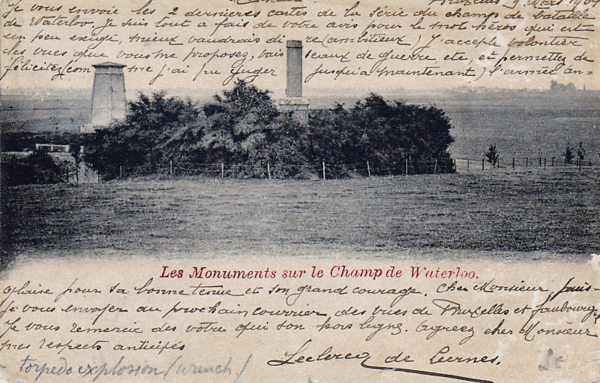 Bruxelles 9 Mars 1904
Je vous envoie les 2 dernières cartes de la série du champ de bataille
de Waterloo, Je suis tout a fais de votre avis pour le mot héros qui est
un peu exigé, mieux vaudrais dire (ambitieux) J'accepte volontier
des vues que vous me proposez, vaisseaux de guerre etc, et permettez de
féliciter (comme j'ai pu juger jusqu'a maintenant) l'armée an-
Les Monuments sur le Champ de Waterloo.
glaise pour sa bonne tenue et son grand courage. Cher Monsieur puis-
Je vous envoyer au prochain courrier, des vues de Bruxelles et faubourg,
Je vous remercie des votre qui son hors ligne. Agréez cher Monsieur
mes respects anticipés
Leclercq de Bernes.
torpedo explosion (wunch)